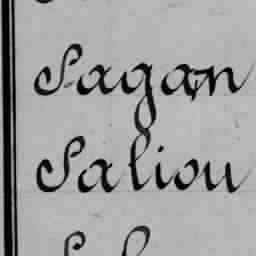 Sagan
Saliou